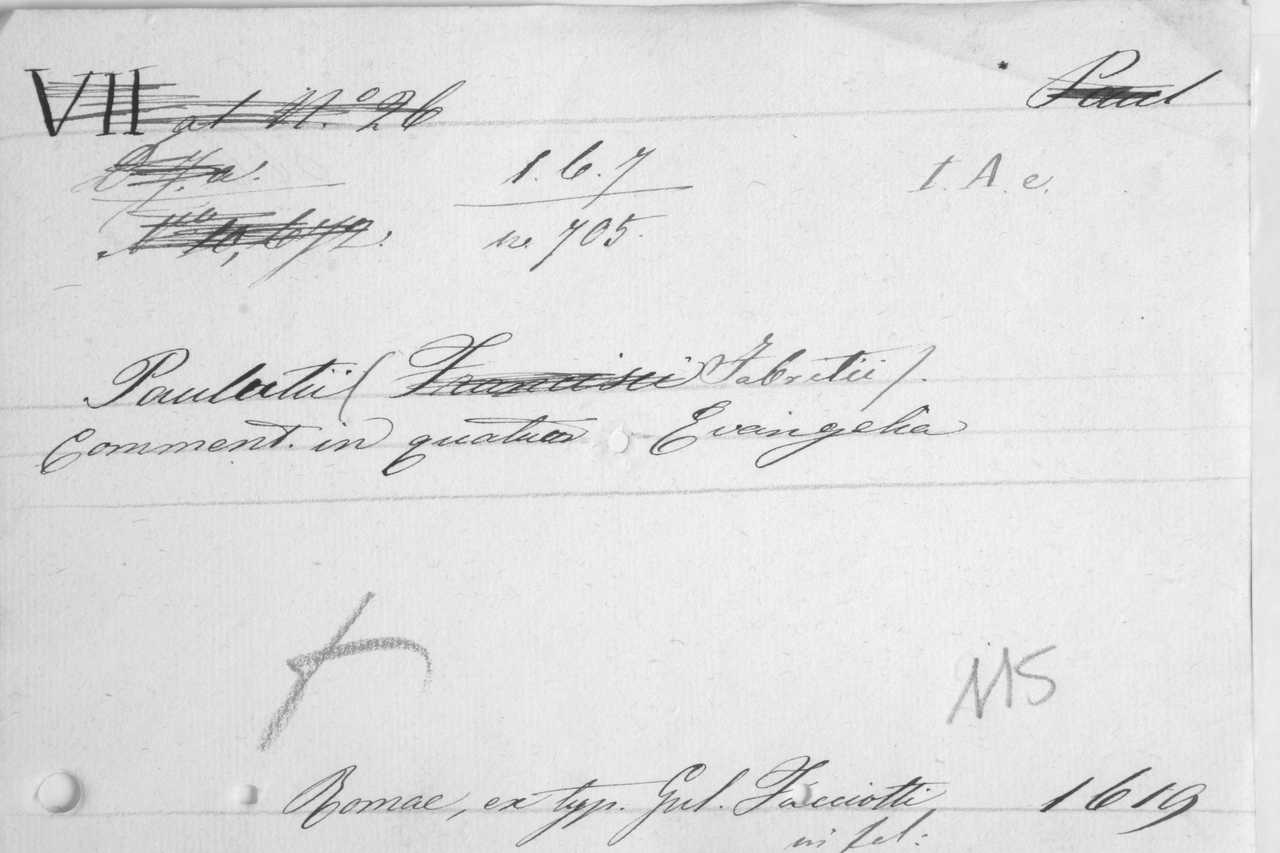 VII at N.º 26
Paul
D.7.a.
1.6.7
I. A. e.
Nro 10,672.
n. 705.
Paulutii (Francisci Fabritii).
Comment. in quatuor Evangelia
115
Romae, ex typ. Gul. Facciotti, 1619
in fol: